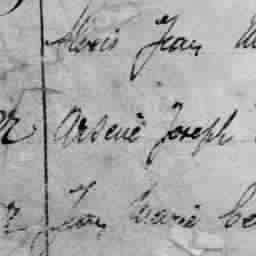 Alexis Jean
Arsène Joseph
Jean Marie